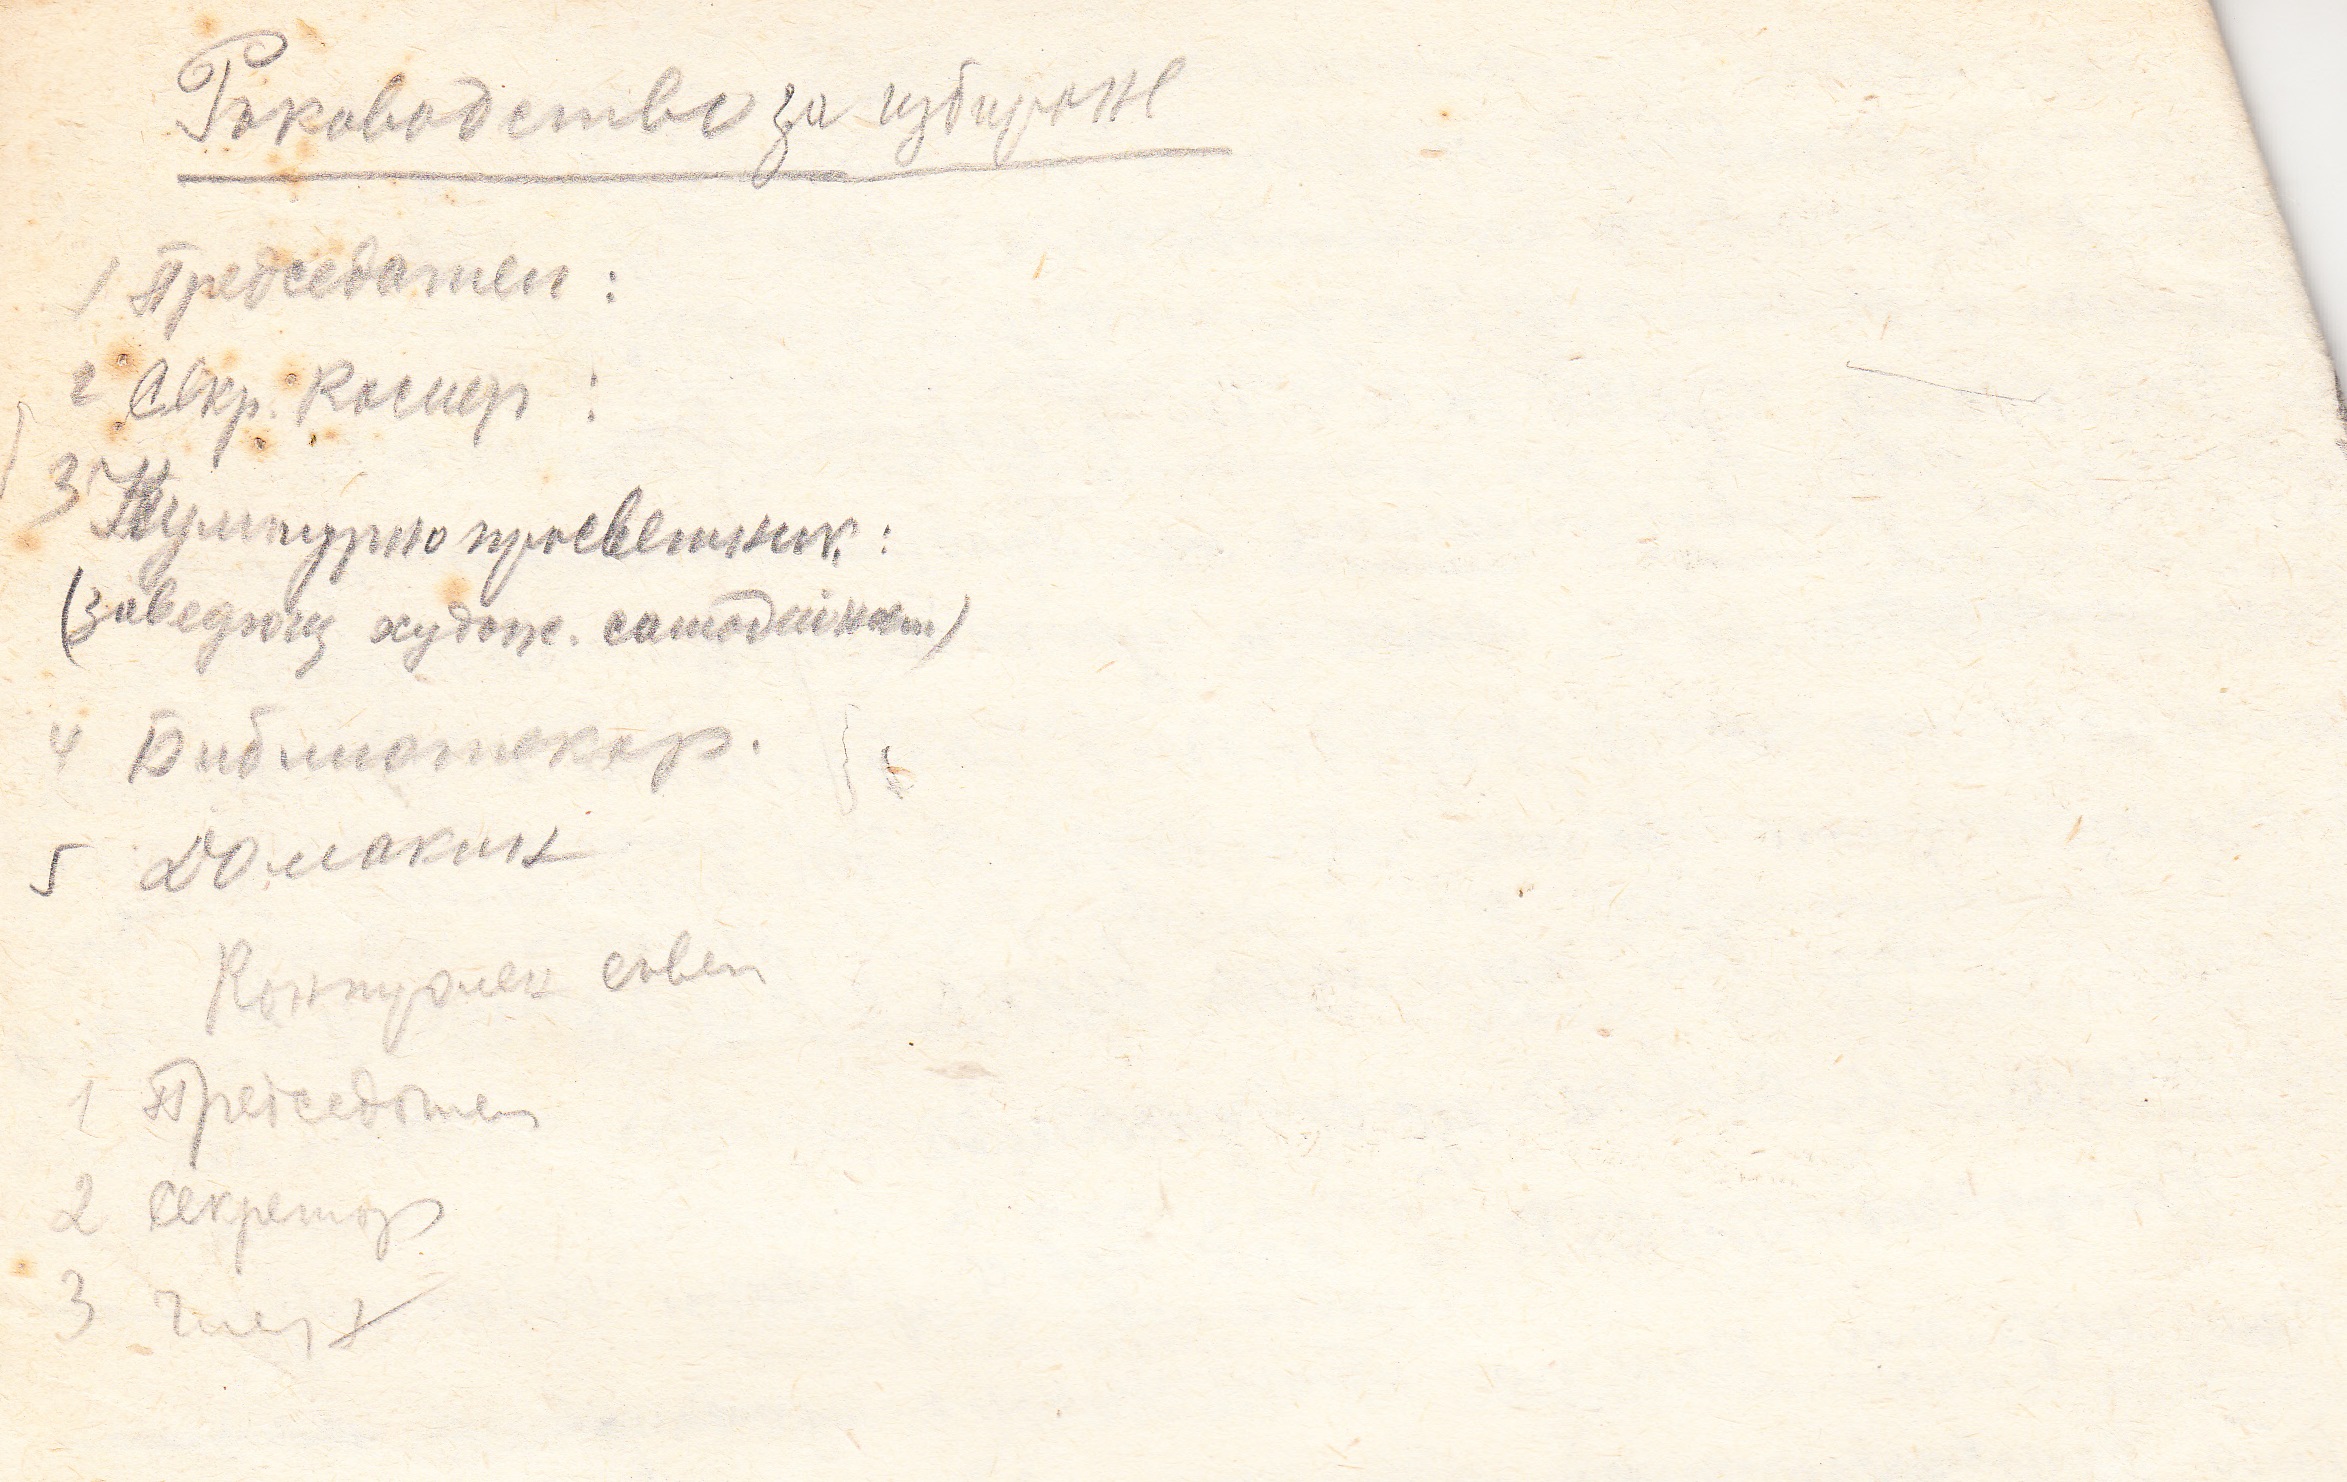 Ръководство за избиране
1 Председател :
2 Секр. Касиер :
3 Културно просветник :
(Завеждащ худож. самодейност)
4 Библиотекар.
5 Домакин
Контролен съвет
1 Председател
2 Секретар
3 Член